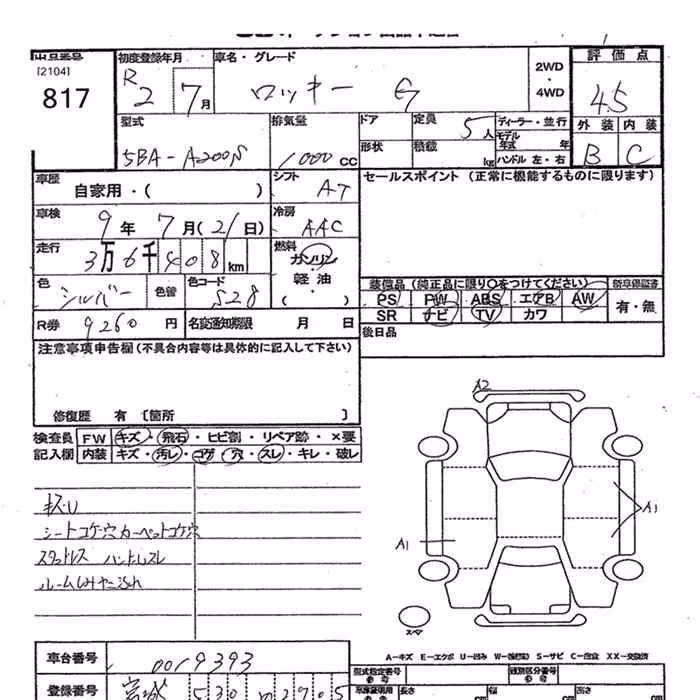 出品番号 初度登録年月 車名・グレード 評価点
[2104] R2 7月 ロッキー G 2WD・4WD 4.5
817
型式 排気量 ドア 定員 5人 ディーラー・並行 外装 内装
5BA-A200S 1000CC 形状 積載 kg モデル年式 年 B C
ハンドル 左・右
車歴 自家用・( ) シフト AT セールスポイント (正常に機能するものに限ります)
車検 9年7月(21日) 冷房 AAC
走行 3万6千408km 燃料 ガソリン 軽油 ・( )
色 シルバー 色替 色コード S28 装備品 (純正品に限り○をつけてください) 新車保証書
PS PW ABS エアB AW 有・無
R券 9260円 名変通知期限 月 日 SR ナビ TV カワ
注意事項申告欄 (不具合内容等は具体的に記入して下さい) 後日品
修復歴 有 [箇所 ]
検査員 FW キズ・飛石・ヒビ割・リペア跡・×要
記入欄 内装 キズ・汚レ・コゲ・穴・スレ・キレ・破レ
A2
キズ・U
シートコゲ穴 カーペットコゲ穴
スタッドレス ハンドルスレ
ルームシミヤニ汚れ
A1
A1
スペア
A-キズ E-エクボ U-凹み W-(補修波) S-サビ C-腐食 XX-交換済
車台番号 0019393 型式指定番号 参考 類別区分番号 参考
登録番号 宮城 530 長さ cm 幅 cm 高さ cm